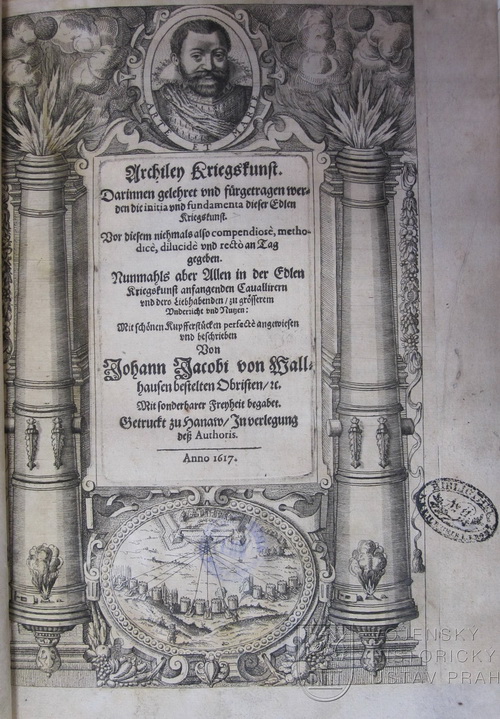 ARTE ET MARTE
Archiley Kriegskunst.
Darinnen gelehret vnd fürgetragen wer-
den die initia vnd fundamenta dieser Edlen
Kriegskunst.
Vor diesem niehmals also compendiosè, metho-
dicè, dilucidè vnd rectò an Tag
gegeben.
Nunmahls aber Allen in der Edlen
Kriegskunst anfangenden Cauallirern
vnd dero Liebhabenden / zu grösserem
Vnderricht vnd Nutzen:
Mit schönen Kupfferstücken perfectè angewiesen
vnd beschrieben
Von
Johann Jacobi von Wall-
hausen bestelten Obristen / ꝛc.
Mit sonderbarer Freyheit begabet.
Getruckt zu Hanaw / In verlegung
deß Authoris.
Anno 1617.
VOJENSKÝ
HISTORICKÝ
ÚSTAV PRAHA